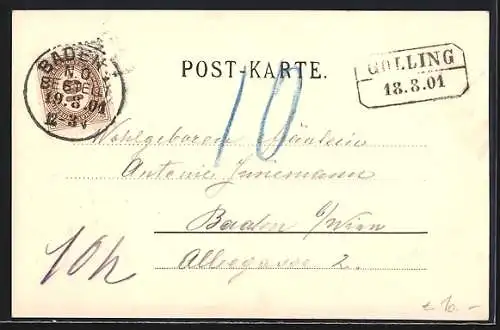 BADEN
19 8 01
12-3V
POST-KARTE.
GOLLING
18.8.01
10
Wohlgeboren Fräulein
Antonie Jünemann
Baden b/Wien
Alleegasse 2.
10h